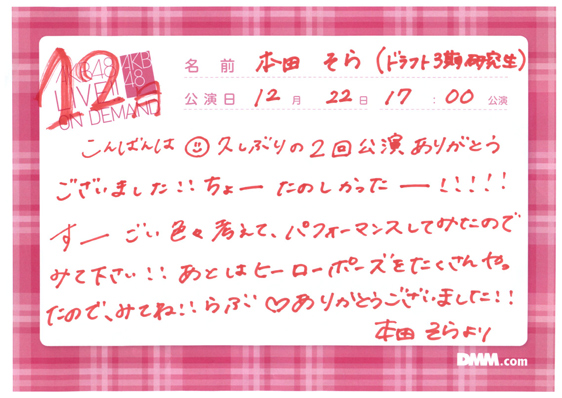 12月
AKB48
LIVE!!
ON DEMAND
AKB
48
名前 本田 そら (ドラフト3期研究生)
公演日 12月 22日 17:00 公演
こんばんは 久しぶりの2回公演ありがとう
ございました!! ちょー たのしかったー!!!!!
すーごい色々考えて、パフォーマンスしてみたので
みて下さい!! あとはヒーローポーズをたくさんやっ
たので、みてね!! らぶ♡ありがとうございました!!
本田 そらより
DMM.com